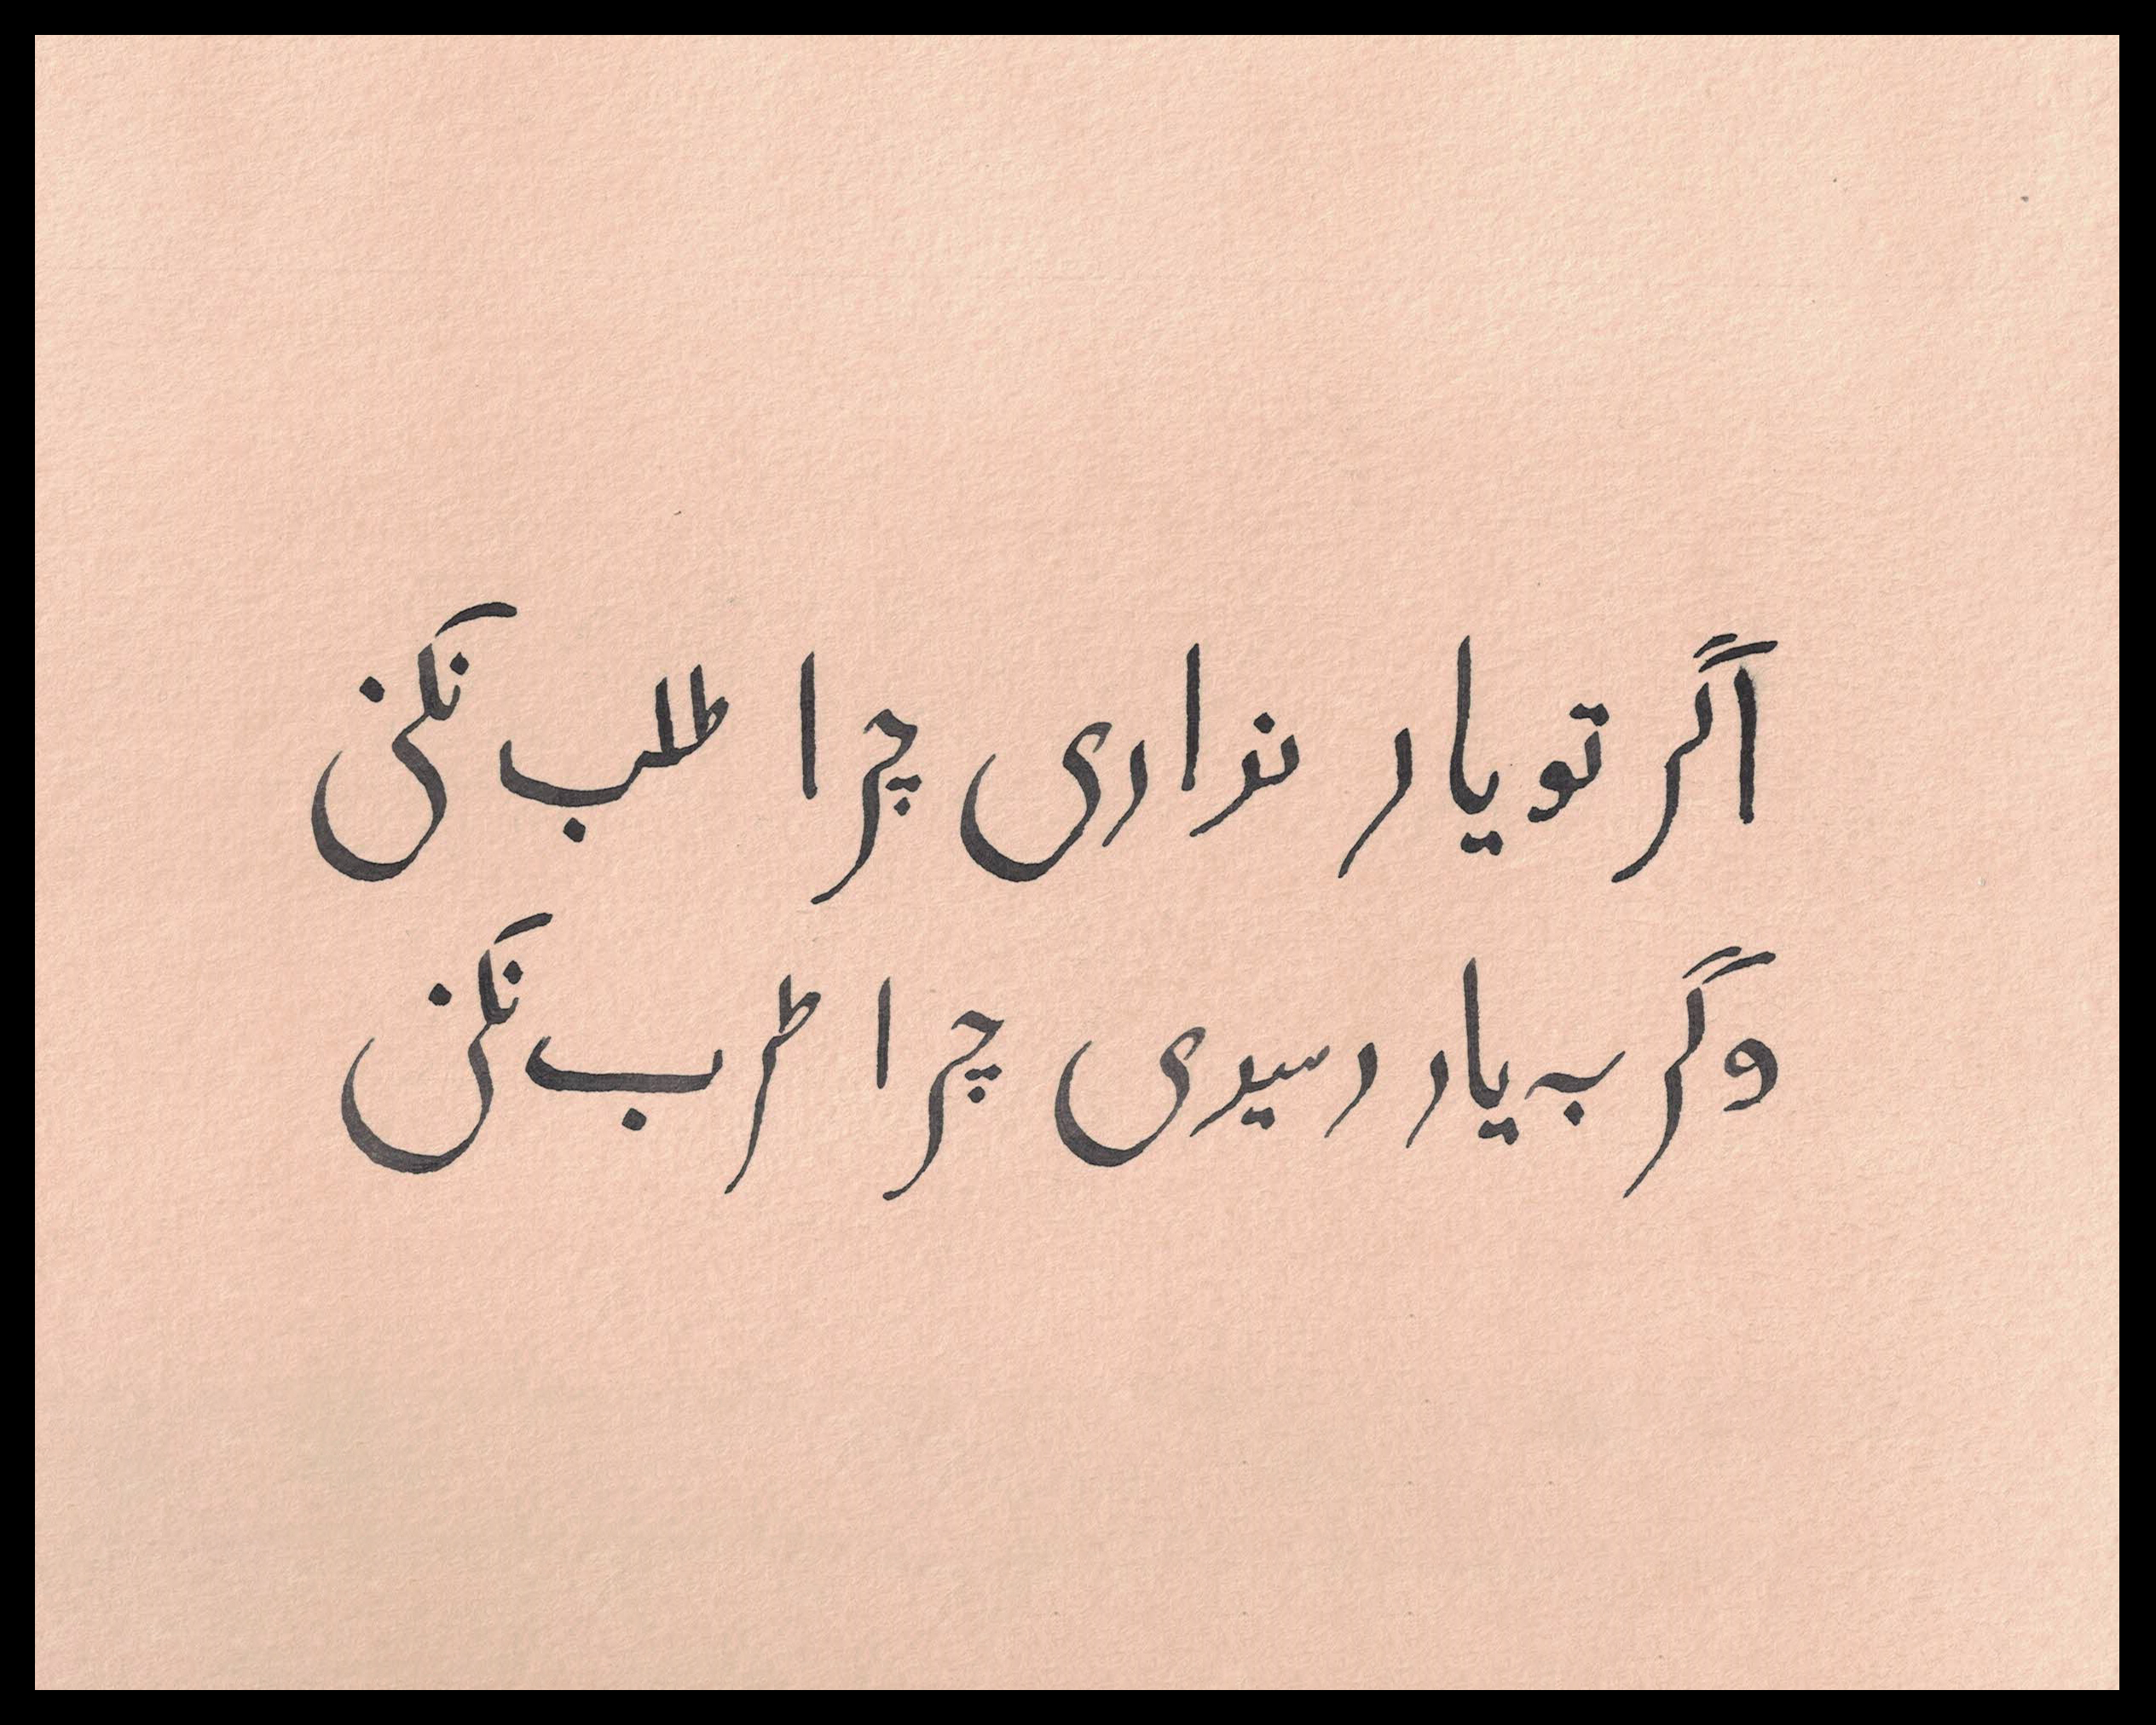 اگر تو یار نداری چرا طلب نکنی
وگر به یار رسیدی چرا طرب نکنی